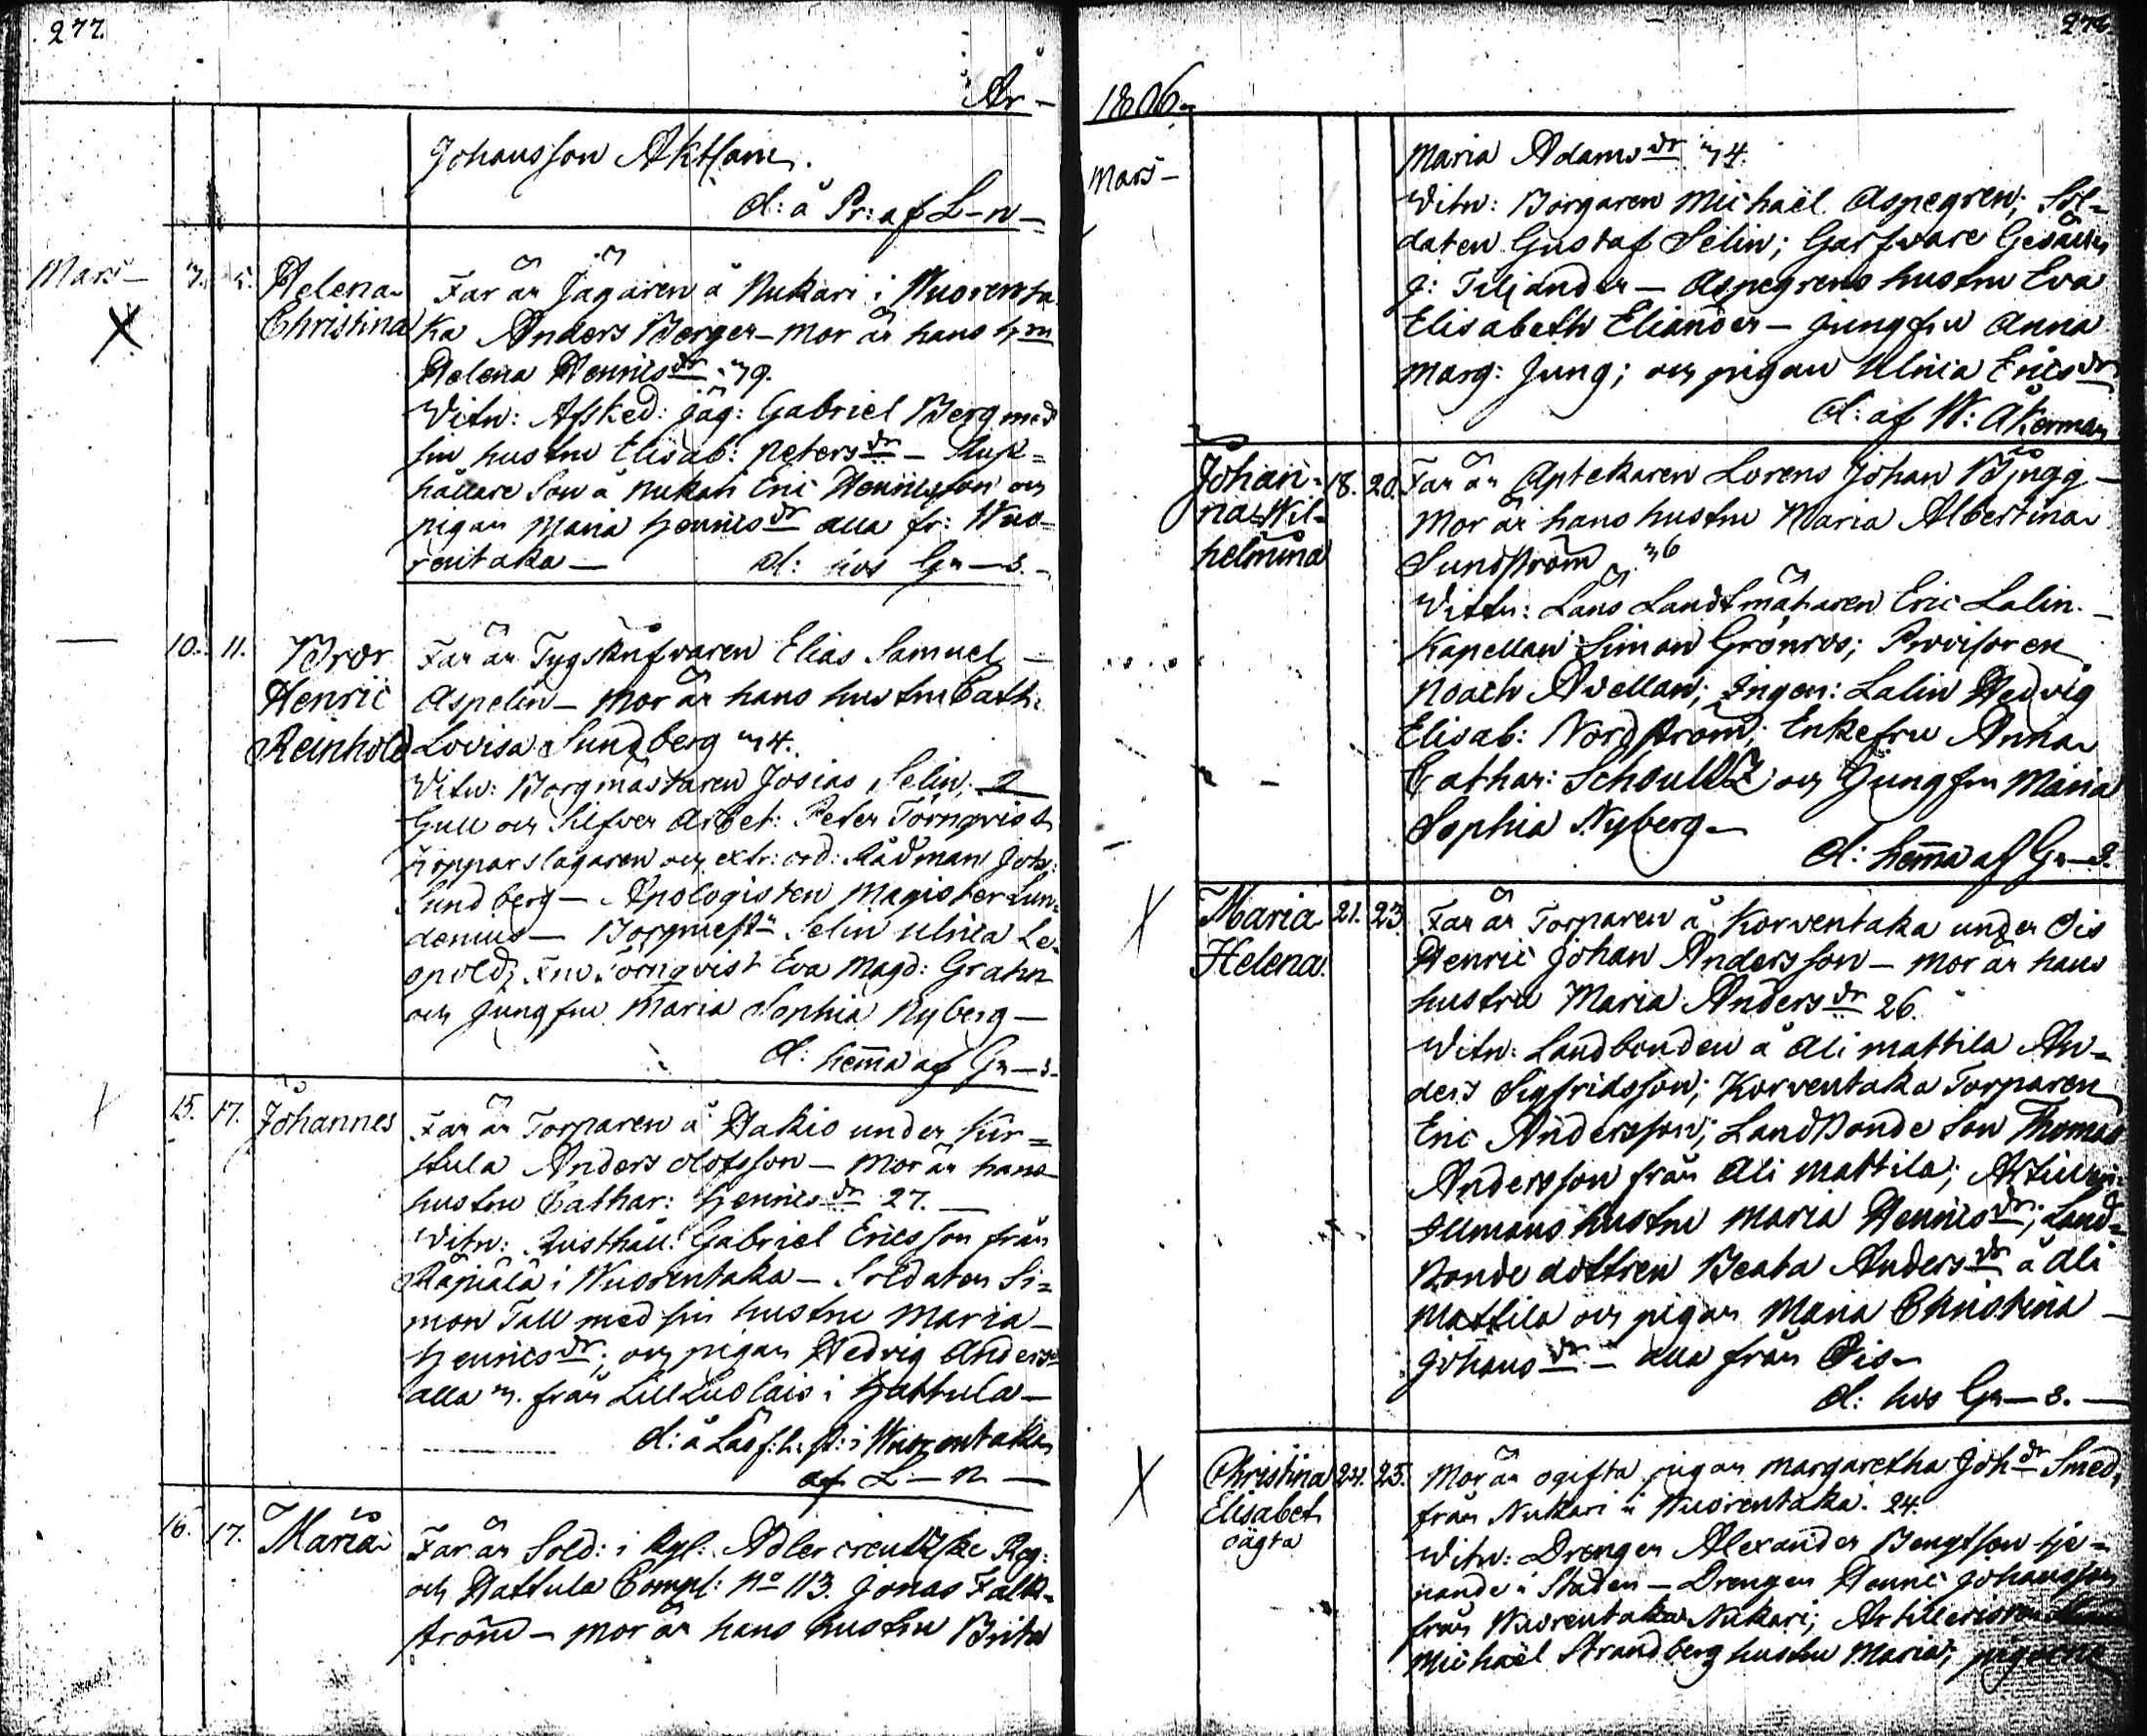 277.
År –
Johansson Aktsam.
d: å Pr: af L–n –
Mars –
7. 5. Helena
Christina
Far är Jägaren å Nukari i Wuorenta
ka Anders Berger – Mor är hans h
Helena Henricsdr 39.
Vitn: Afsked: jäg: Gabriel Berg med
sin hustru Elisab: Petersdr –
hållare Son å Nukari Eric Henricsson och
pigan Maria Henricsdr alla fr: Wuo=
rentaka –
d: hos Gr – s. –
10. 11. Bror
Henric
Reinhold
Far är Tygskrifvaren Elias Samuel –
Aspelin – Mor är hans hustru Cath:
Lovisa Sundberg 34.
Vitn: Borgmästaren Josias Selin;
Gull och Silfver Arbet: Peter Törnqvist
Kopparslagaren och extr: ord: Rådman Joh:
Sundberg – Apologisten Magister Lun=
denius – Selin Ulrica Le=
opold; Fru Törnqvist Eva Magd: Grahn
och Jungfru Maria Sophia Nyberg –
d: hemma af Gr – s –
15. 17. Johannes
Far är Torparen å Hakio under Kir=
stula Anders Olofsson – Mor är hans
hustru Cathar: Henricsdr 27. –
Vitn: Rusthåll: Gabriel Ericsson från
Räpiälä i Wuorentaka – Soldaten Si=
mon Tall med sin hustru Maria –
Henricsdr; och pigan Hedvig Andersdr
alla från Lill Luolais i Hattula –
d: å Läsf: h: st: i Wuorentaka
af L – n –
16. 17. Maria
Far är Sold: i Kgl: Adlercreutzske Reg:
och Hattula Comp: No 113. Jonas Falk=
ström – mor är hans hustru Brita
1806 –
Mars –
Maria Adamsdr 34.
Vitn: Borgaren Michaël Aspegren; Sol=
daten Gustaf Selin; Garfvare Gesällen
J: Tiljander – Aspegrens hustru Eva
Elisabeth Eliander – Jungfru Anna
Marg: Jung; och pigan Ulrica Ericsdr
d: af W: Åkerman
Johan=
na Wil=
helmina
18. 20. Far är Aptekaren Lorens Johan Bjugg –
Mor är hans hustru Maria Albertina
Sundström 36
Vittn: Läns Landtmätaren Eric Lalin. –
Kapellan Simon Grönros; Provisoren
Noach Avellan; Ingen: Lalin Hedvig
Elisab: Nordström; Enkefru Anna
Cathar: Schoultz och Jungfru Maria
Sophia Nyberg –
d: hemma af Gr – s.
Maria
Helena.
21. 23. Far är Torparen å Korventaka under Ois
Henric Johan Andersson – Mor är hans
hustru Maria Andersdr 26.
Vitn: Landbonden å Ali Mattila An=
ders Sigfridsson; Korventaka Torparen
Eric Andersson; LandBonde Son Thomas
Andersson från Ali Mattila;
hustru Maria Henricsdr; Land=
Bonde dottren Beata Andersdr å Ali
Mattila och pigan Maria Christina –
Johansdr – alla från Ois –
d: hos Gr – s. –
Christina
Elisabet
oägta
24. 25. Mor är ogifta pigan Margaretha Johdr Smed,
från Nukari i Wuorentaka. 24.
Vitn: Drengen Alexander Bengtson tje=
nande i Staden – Drengen Henric Johansson
från Wuorentaka Nukari; Artilleristen
Michaël Strandberg hustru Maria; pigorne